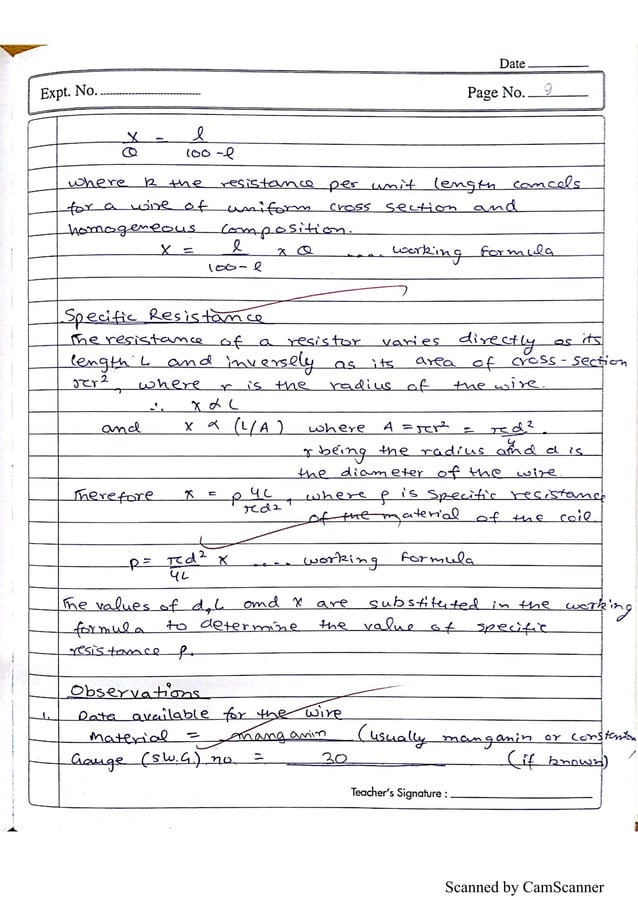 Date
Expt. No.
Page No. 9
x/Q = l/100-l
where k the resistance per unit length cancels
for a wire of uniform cross section and
homogeneous composition.
X = l/100-l x Q .... working formula
Specific Resistance
The resistance of a resistor varies directly as its
length L and inversely as its area of cross-section
πr², where r is the radius of the wire.
∴ x ∝ L
and x ∝ (L/A) where A = πr² = πd²/4
r being the radius and d is
the diameter of the wire.
Therefore x = ρ 4L/πd², where ρ is specific resistance
of the material of the coil.
ρ = πd²/4L x .... working formula
The values of d, L and x are substituted in the working
formula to determine the value of specific
resistance ρ.
Observations
1. Data available for the wire
Material = manganin (usually manganin or constantan
Gauge (S.W.G.) no. = 30 (if known)
Teacher's Signature :
Scanned by CamScanner